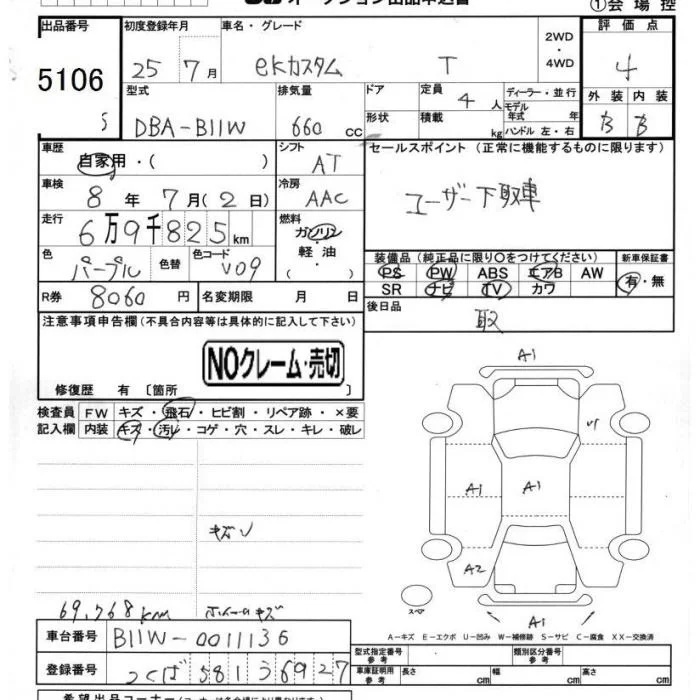 ①会場控
出品番号 初度登録年月 車名・グレード 評価点
5106 25 7月 ekカスタム T 2WD・4WD 4
型式 排気量 ドア 定員 4人 ディーラー・並行 外装 内装
S DBA-B11W 660 cc 形状 積載 kg モデル年式 年 ハンドル 左・右 B B
車歴 自家用・( ) シフト AT セールスポイント (正常に機能するものに限ります)
車検 8年 7月(2日) 冷房 AAC ユーザー下取車
走行 6万9千825km 燃料 ガソリン
色 パープル 色替 色コード V09 軽・油 ( )
装備品(純正品に限り○をつけてください) 新車保証書
PS PW ABS エアB AW 有・無
SR ナビ TV カワ
R券 8060円 名変期限 月 日 後日品
注意事項申告欄(不具合内容等は具体的に記入して下さい) 取
NOクレーム・売切
修復歴 有 〔箇所 〕
検査員記入欄 FW キズ・飛石・ヒビ割・リペア跡・×要
内装 キズ・汚レ・コゲ・穴・スレ・キレ・破レ
A1
A1 A1 A1
キズU
A2
スペア
A1
69,768km ホイールキズ
A-キズ E-エクボ U-凹み W-補修跡 S-サビ C-腐食 XX-交換済
車台番号 B11W-0011136
型式指定番号 参考 類別区分番号 参考
登録番号 つくば 581 う 6927
車庫証明用 参考 長さ cm 幅 cm 高さ cm
希望出品コーナー